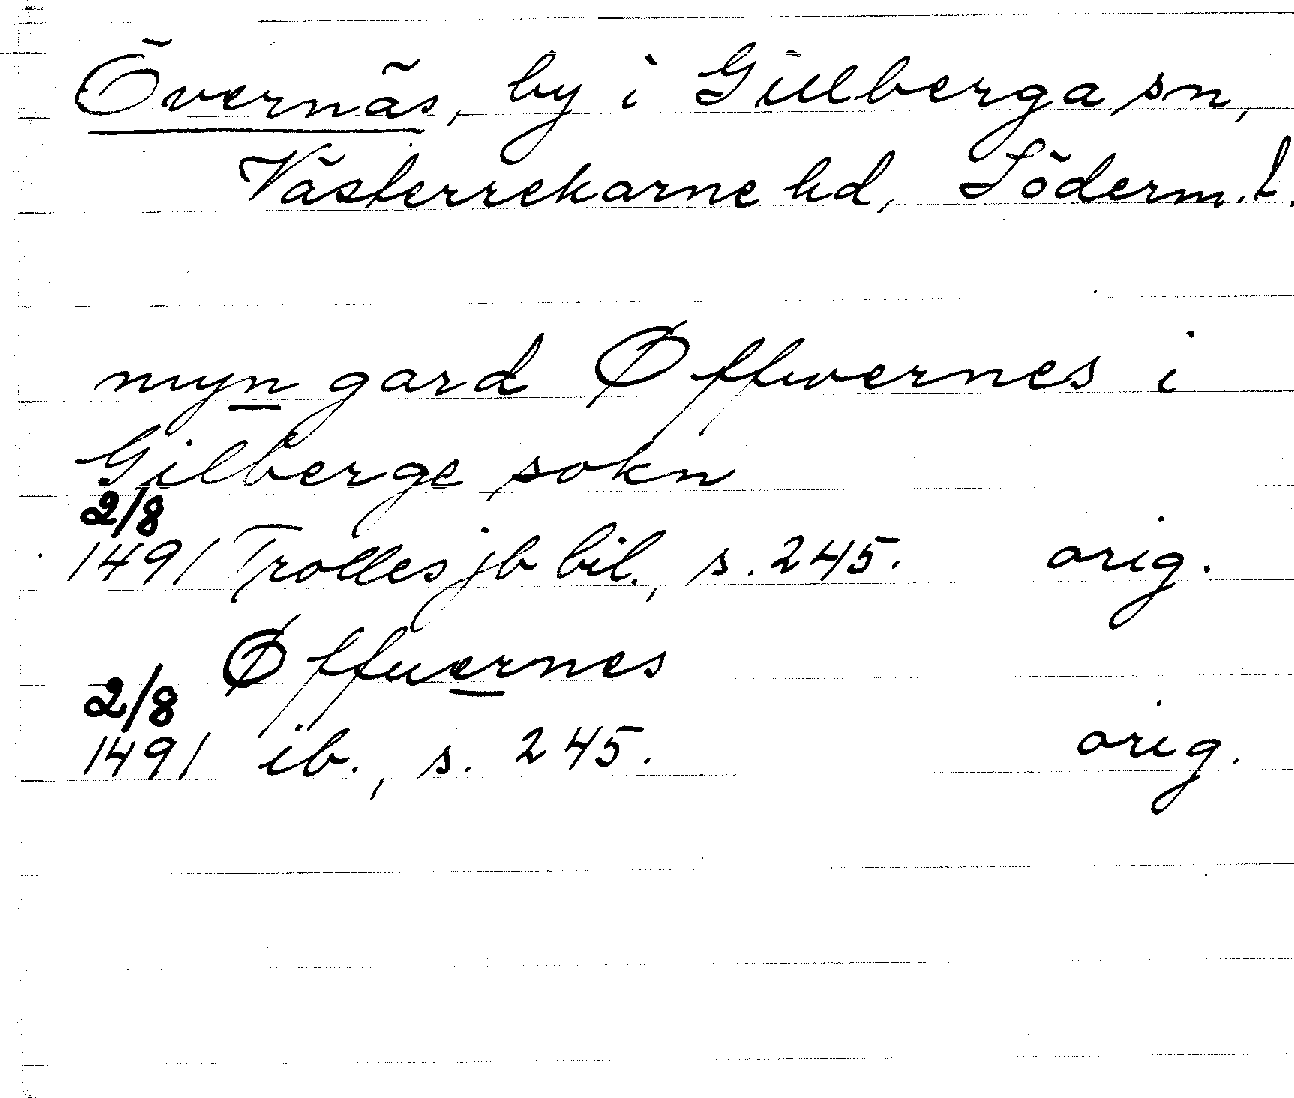 Övernäs, by i Gillberga sn,
Västerrekarne hd, Söderm. l.
myn gard Øffwernes i
Gilberge sokn
2/8
1491 Trolles jb bil., s. 245. orig.
Øffuernes
2/8
1491 ib., s. 245. orig.